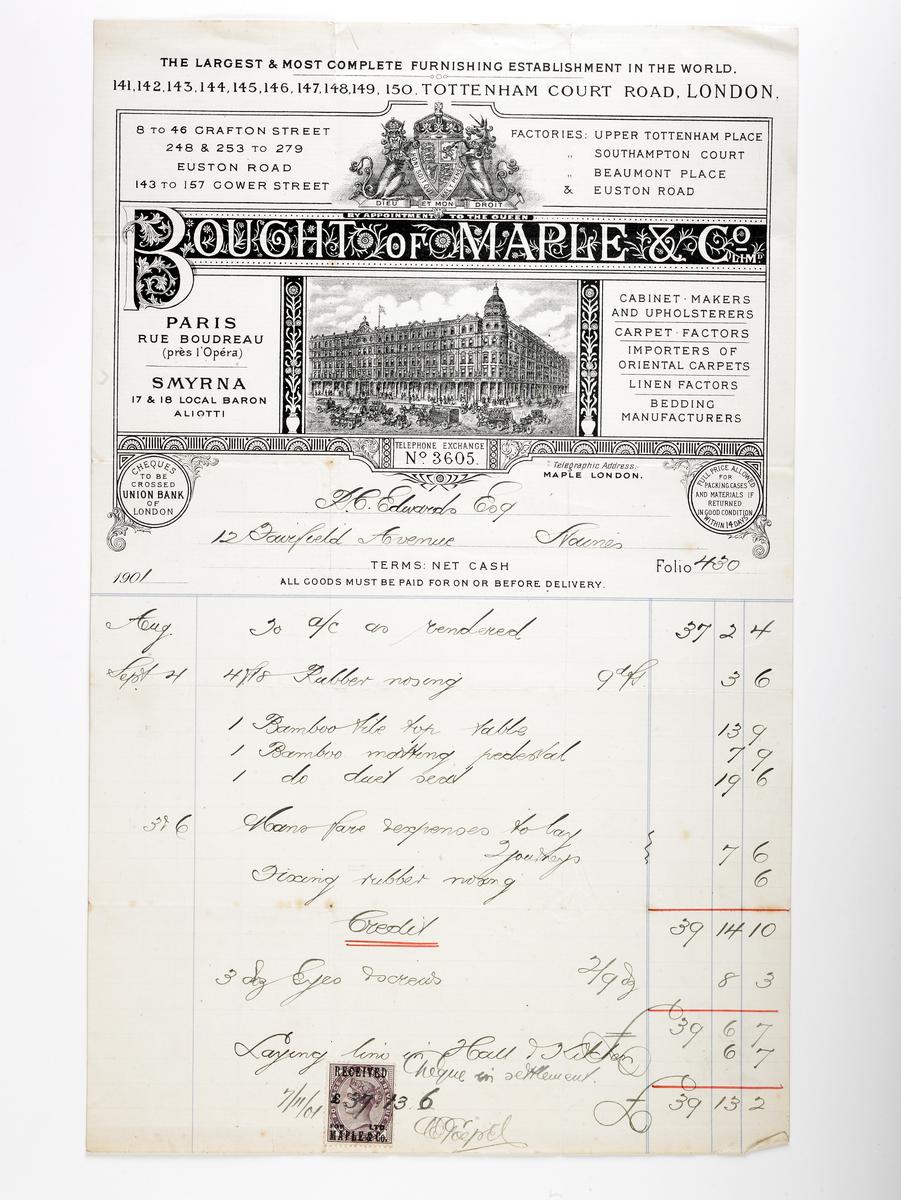 THE LARGEST & MOST COMPLETE FURNISHING ESTABLISHMENT IN THE WORLD.
141,142,143,144,145,146, 147,148,149, 150, TOTTENHAM COURT ROAD, LONDON.
8 TO 46 GRAFTON STREET
248 & 253 TO 279
EUSTON ROAD
143 TO 157 GOWER STREET
FACTORIES: UPPER TOTTENHAM PLACE
„ SOUTHAMPTON COURT
„ BEAUMONT PLACE
& EUSTON ROAD
DIEU ET MON DROIT
BY APPOINTMENT TO THE QUEEN
BOUGHT OF MAPLE & Co LIMD
PARIS
RUE BOUDREAU
(près l'Opéra)
SMYRNA
17 & 18 LOCAL BARON
ALIOTTI
CABINET·MAKERS
AND UPHOLSTERERS
CARPET·FACTORS
IMPORTERS OF
ORIENTAL CARPETS
LINEN FACTORS
BEDDING
MANUFACTURERS
TELEPHONE EXCHANGE
No 3605.
Telegraphic Address:
MAPLE LONDON.
CHEQUES
TO BE
CROSSED
UNION BANK
OF
LONDON
FULL PRICE ALLOWED
FOR
PACKING CASES
AND MATERIALS IF
RETURNED
IN GOOD CONDITION
WITHIN 14 DAYS
A.C. Edwards Esq
12 Fairfield Avenue Staines
TERMS: NET CASH
Folio 430
1901
ALL GOODS MUST BE PAID FOR ON OR BEFORE DELIVERY.
Aug. To a/c as rendered 37 2 4
Sept 4 Rubber nosing 3 6
1 Bamboo tile top table 13 9
1 Bamboo matting pedestal 7 9
1 do duet seat 19 6
Mans fare & expenses to bay
2 journeys 7 6
Fixing rubber nosing 6
Credit 39 14 10
3 dz Eyes & screws 2/9 dz 8 3
£ 39 6 7
Laying lino in Hall & Kitchen 6 7
Cheque in settlement.
£ 39 13 2
7/11/01
RECEIVED
£ 37 13. 6
FOR LTD
MAPLE & Co.